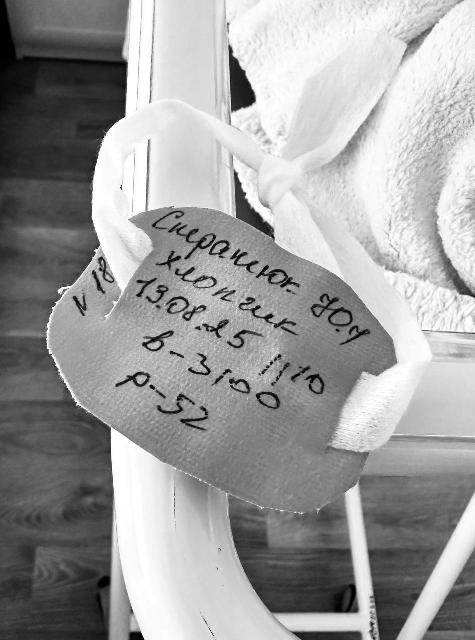 N 18
Стратюк Ю.Ч
хлопчик
13.08.25 11 10
в-3100
р-52